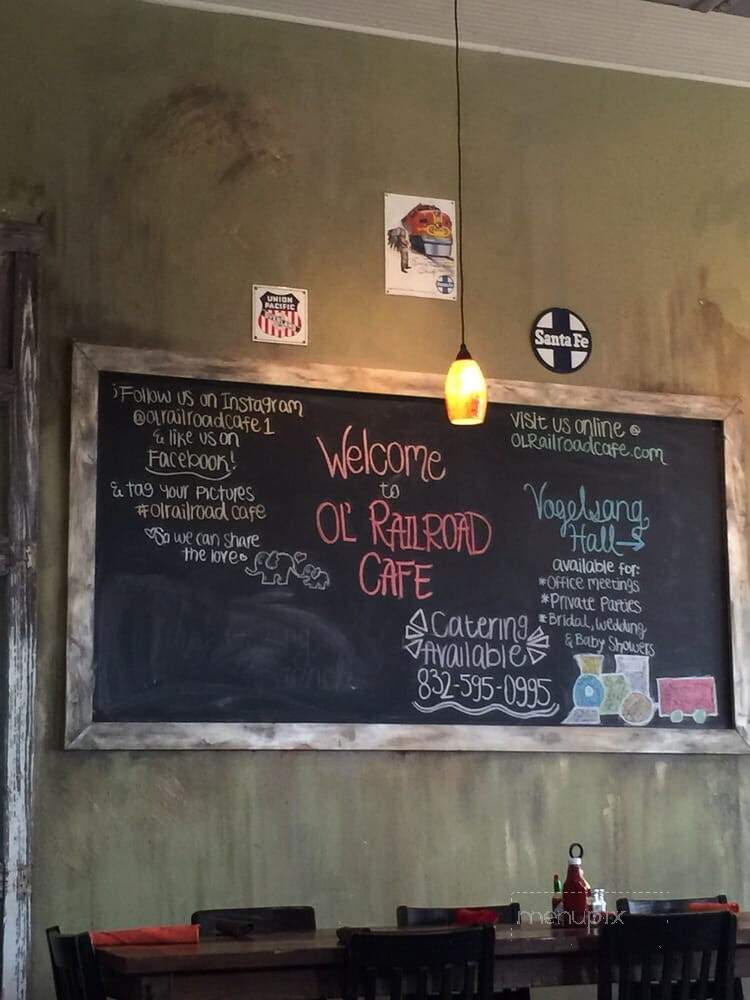 UNION
PACIFIC
Santa Fe
Follow us on Instagram
@olrailroadcafe1
& like us on
Facebook!
& tag your pictures
#olrailroadcafe
So we can share
the love
Welcome
to
OL' RAILROAD
CAFE
Catering
Available
832-595-0995
Visit us online @
OLRailroadcafe.com
Vogelsang
Hall
available for:
*Office meetings
*Private Parties
*Bridal, Wedding
& Baby Showers
menupix